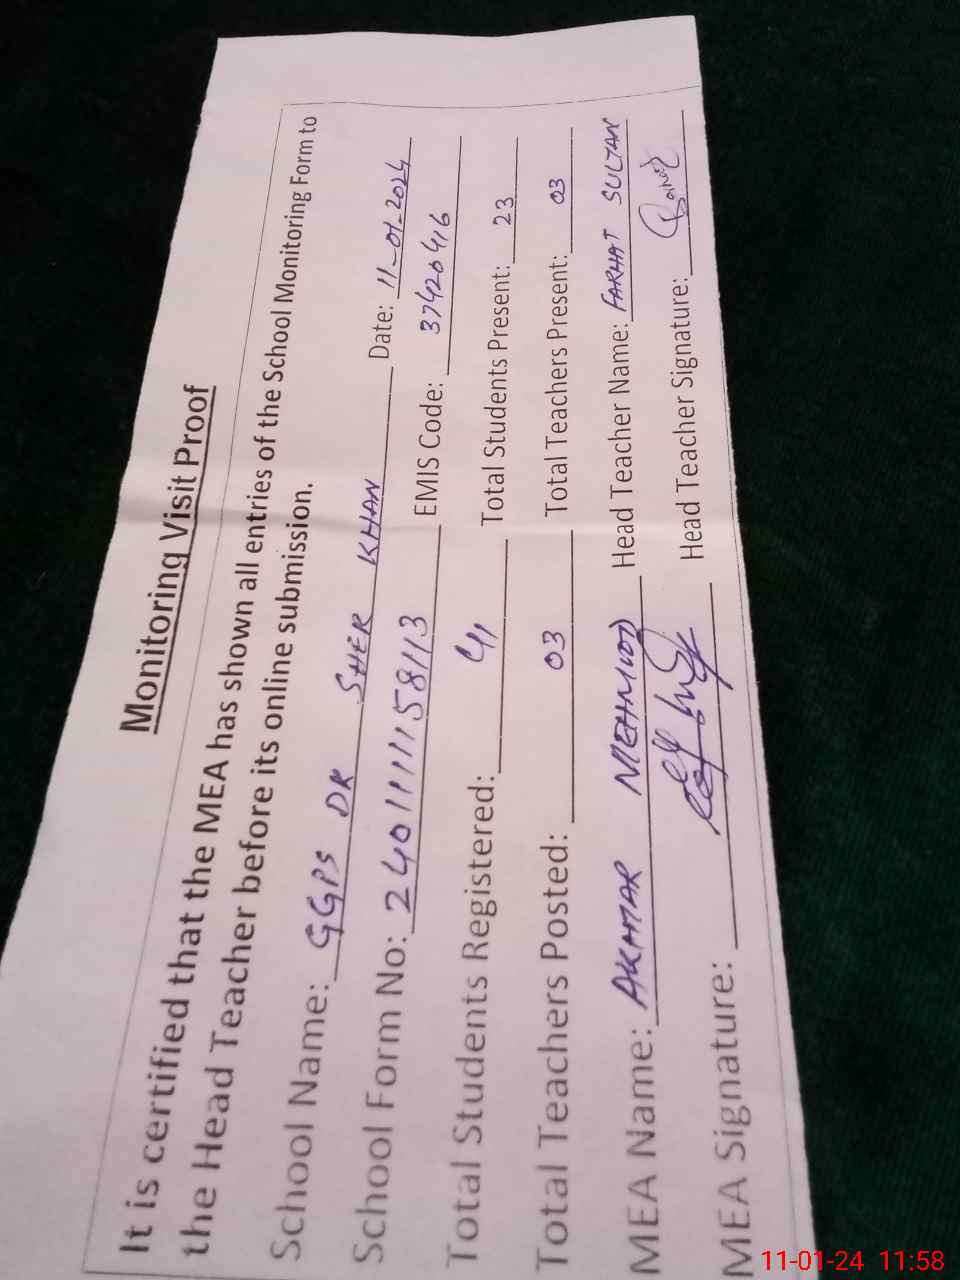 Monitoring Visit Proof
It is certified that the MEA has shown all entries of the School Monitoring Form to
the Head Teacher before its online submission.
School Name: GGPS DK SHER KHAN Date: 11-01-2024
School Form No: 24011111158113 EMIS Code: 37420416
Total Students Registered: 41 Total Students Present: 23
Total Teachers Posted: 03 Total Teachers Present: 03
MEA Name: AKHTAR MEHMOOD Head Teacher Name: FARHAT SULTAN
MEA Signature: Head Teacher Signature:
11-01-24 11:58